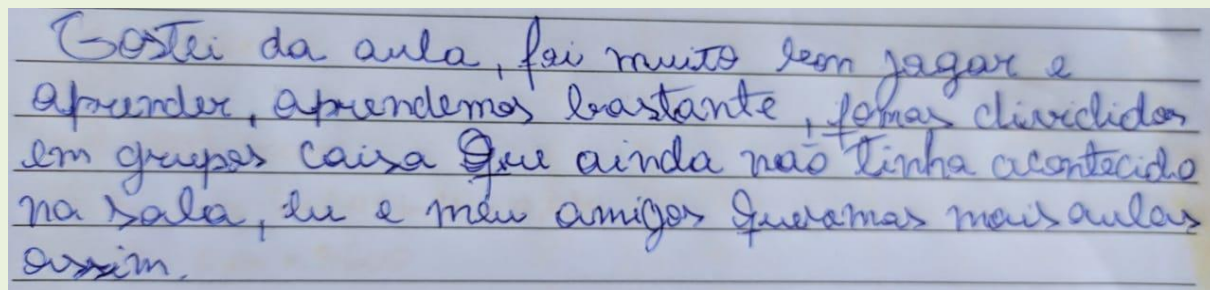 Gostei da aula, foi muito bom jogar e
aprender, aprendemos bastante, fomos divididos
em grupos coisa que ainda não tinha acontecido
na sala, eu e meu amigos queramos mais aulas
assim.